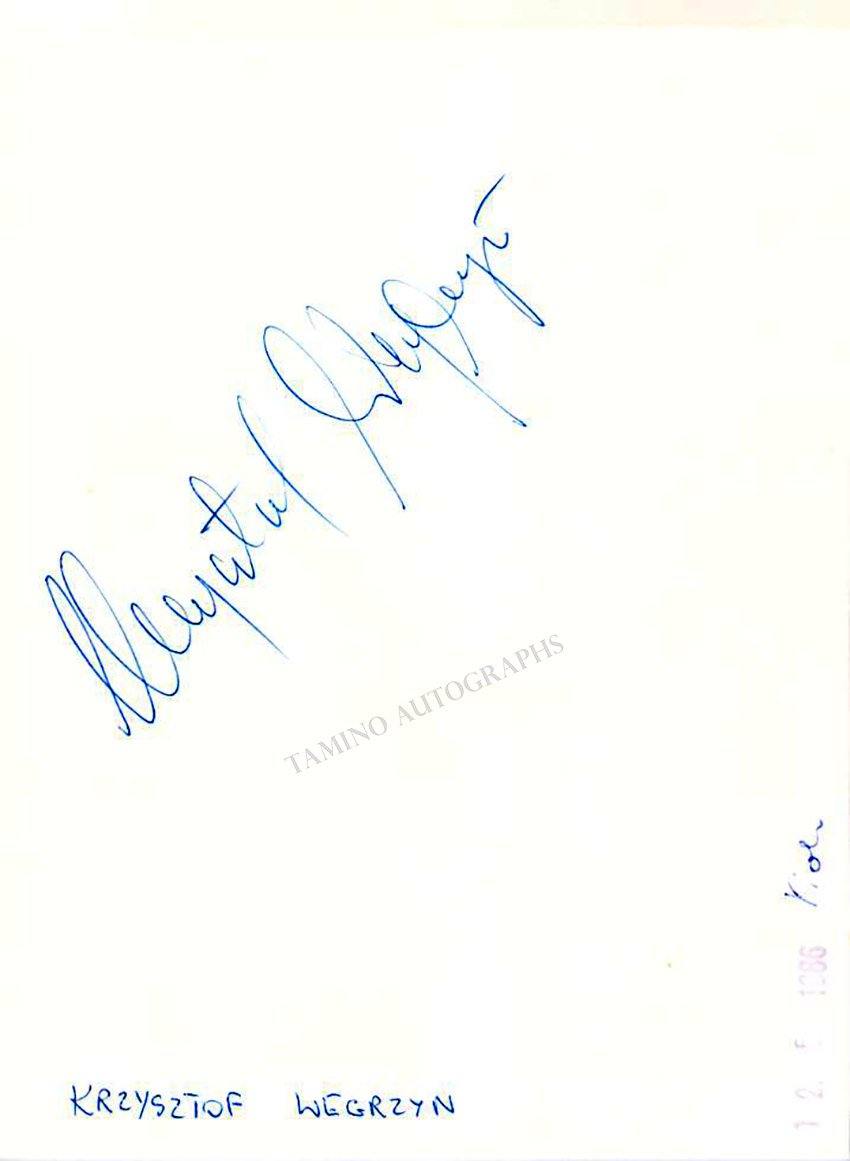 Krzysztof Węgrzyn
TAMINO AUTOGRAPHS
Viol.
KRZYSZTOF WEGRZYN